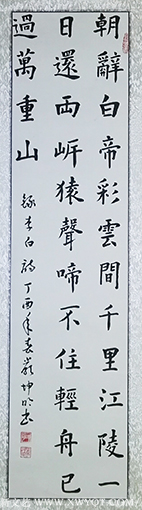 朝辭白帝彩雲間千里江陵一
日還兩岸猿聲啼不住輕舟已
過萬重山
錄李白詩丁酉年春嚴坤昕書